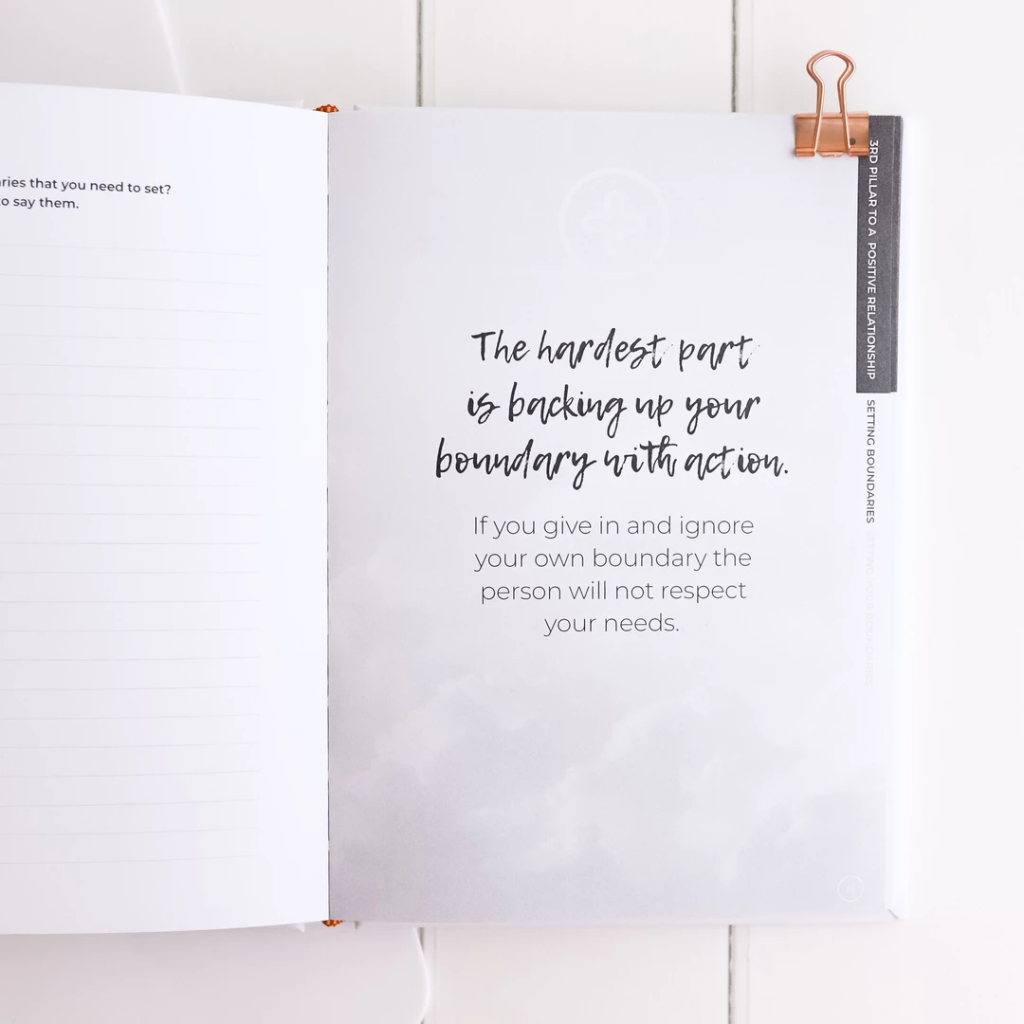 aries that you need to set?
to say them.
The hardest part
is backing up your
boundary with action.
If you give in and ignore
your own boundary the
person will not respect
your needs.
3RD PILLAR TO A POSITIVE RELATIONSHIP
SETTING BOUNDARIES